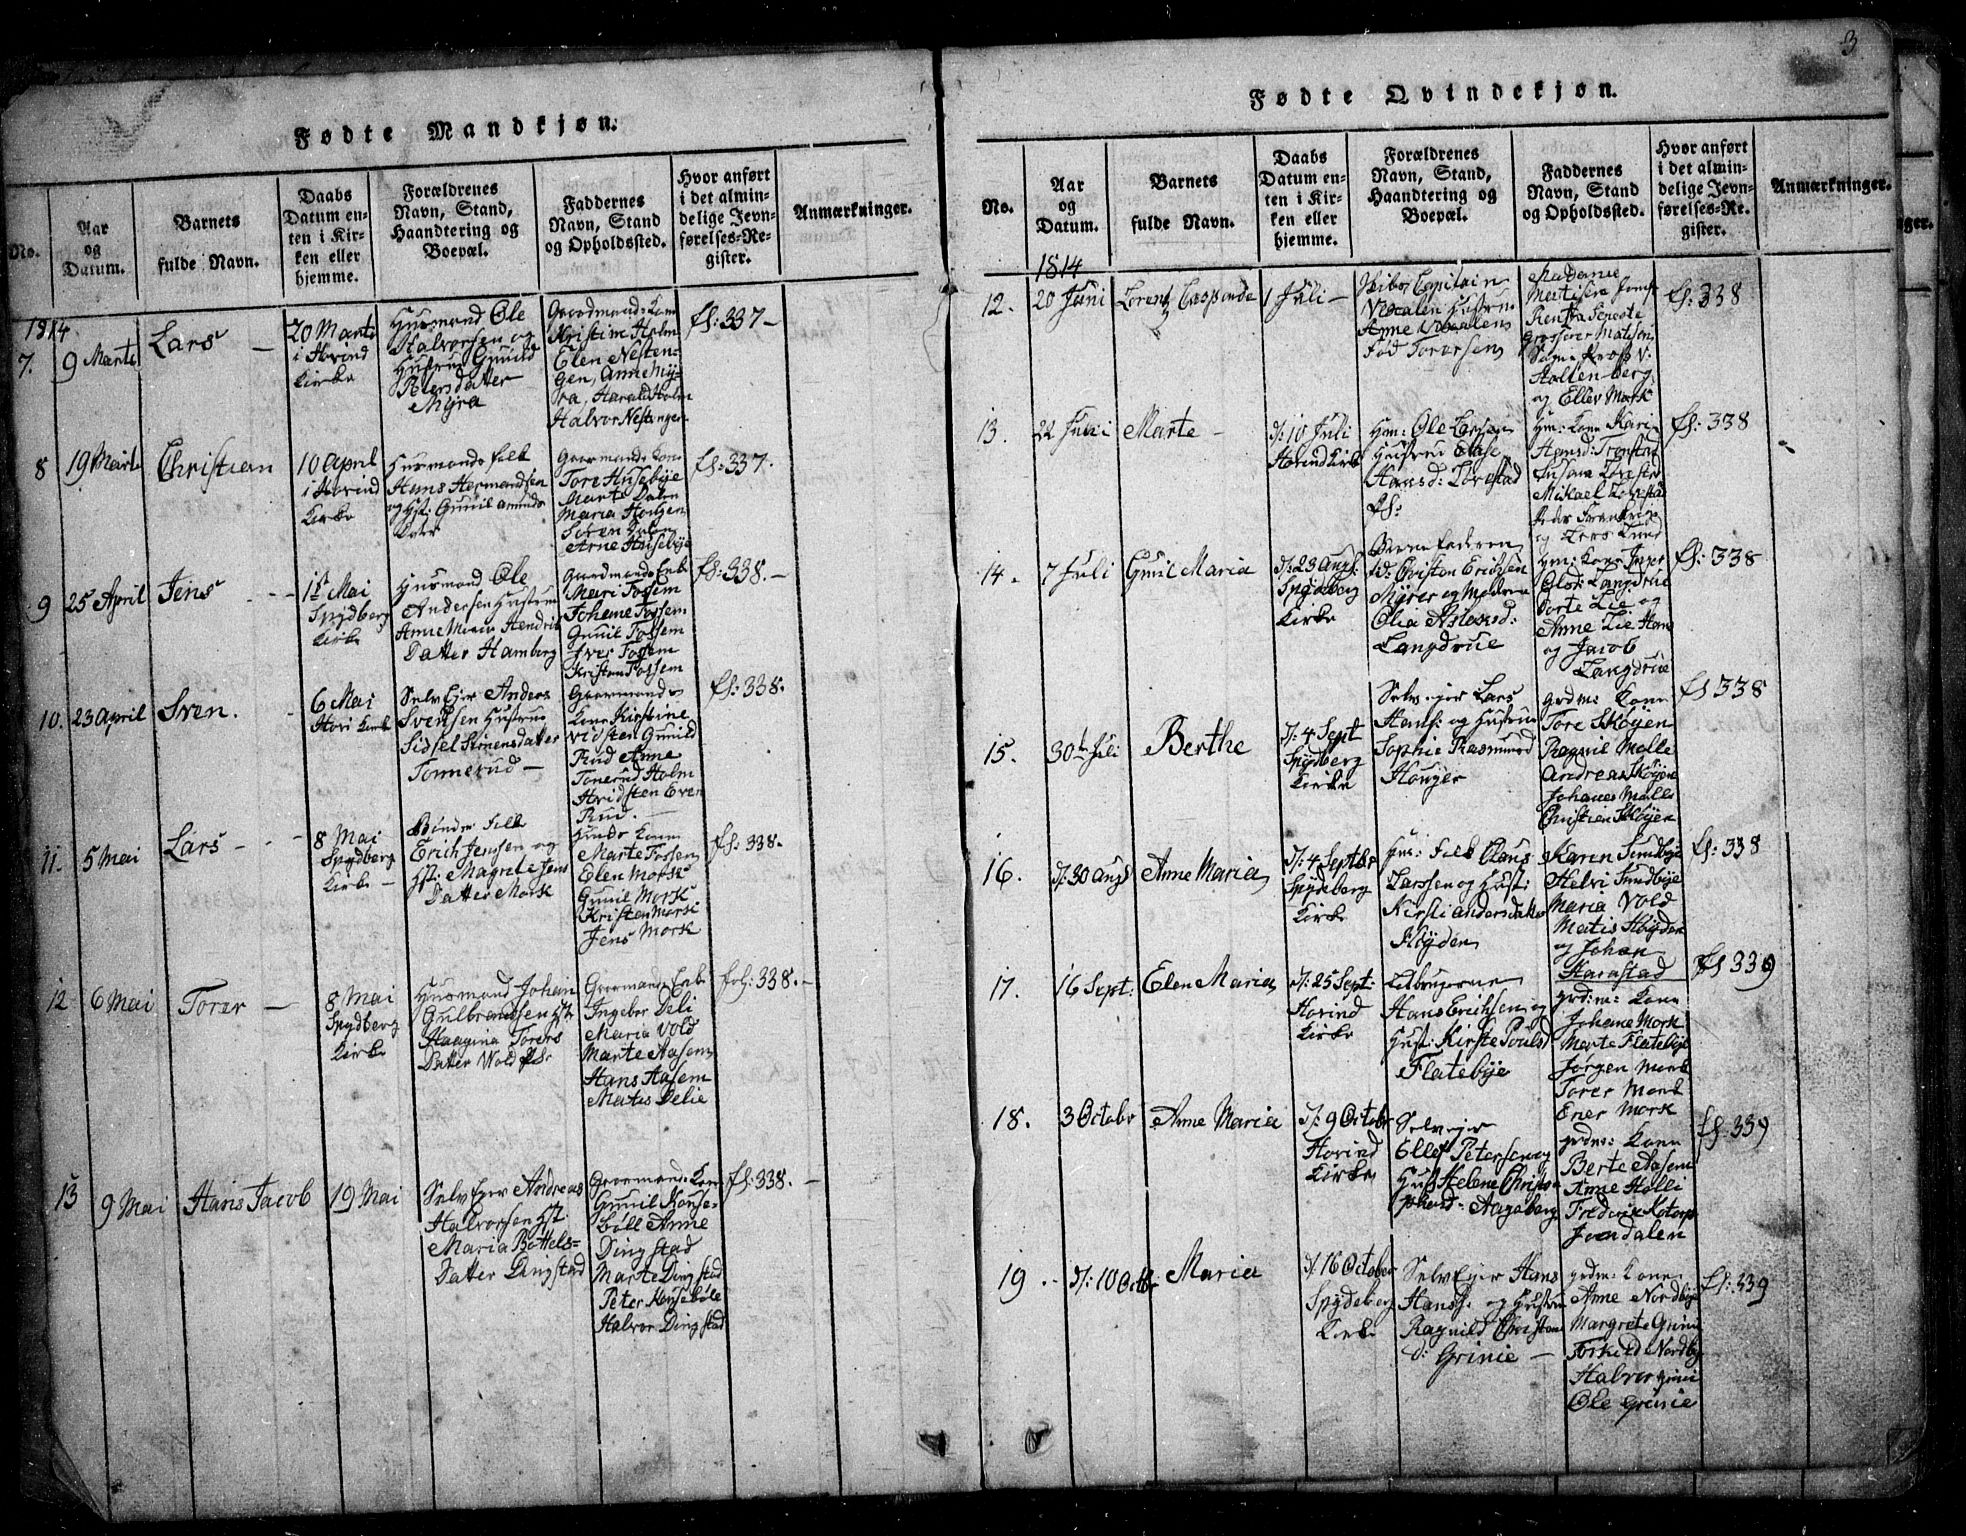 3
Fødte Mandkjøn.
No.
Aar
og
Datum.
Barnets
fulde Navn.
Daabs
Datum en-
ten i Kir-
ken eller
hjemme.
Forældrenes
Navn, Stand,
Haandtering og
Boepæl.
Faddernes
Navn, Stand
og Opholdssted.
Hvor anført
i det almin-
delige Jevn-
førelses-Re-
gister.
Anmærkninger.
1814
7.
9 Marts
Lars
20 Marts
i Hovind
Kirke
Husmand Ole
Halvorsen og
Hustrue Gunild
Peersdatter
Myra
Kristine Holm
Elen Nesten-
gen, Anne My-
ra, Harald Holm
Halvor Nestengen
fl: 337 –
8
19 Marts
Christian
10 April
i Hovind
Kirke
Husmands folk
Hans Hermandsen
og Hst: Gunil Amunds
Datter
Tore Husebye
Marte Dalen
Maria Hougen
Søren Dalen
Arne Husebye
fl: 337.
9
25 April
Jens
1st Mai
Spydberg
Kirke
Husmand Ole
Andersen Hustrue
Anne Marie Hendrics
Datter Hamberg
Mari Fossem
Johane Fossem
Gunil Fossem
Iver Fossem
Kristen Fossem
fl: 338. –
10.
23 April
Sven.
6 Mai
Hovi Kirk
Selv Ejer Anders
Svensen Hustrue
Sidsel Simensdatter
Tonnerud –
Gaarmands
Kone Kirstine
Vidsten Gunild
Rud Anne
Tonerud Holm
Hvidsten Even
Rud.
fl: 338.
11.
5 Mai
Lars –
8 Mai
Spydberg
Kirke –
Bønder Folk
Erich Jenssen og
Hst: Magrete Jens
Datter Mørk
Marte Fossem
Elen Mørsk
Gunil Morsk
Kristen Morsk
Jens Mork
fl: 338.
12
6 Mai
Torer –
8 Mai
Spydberg
Kirke
Husmand Johan
Gulbrandsen Hst
Haagina Torers
Datter Wold
Ingebor Deli
Maria Vold
Marte Aasem
Hans Aasem
Matis Delie
fol: 338. –
13
9 Mai
Hans Jacob
19 Mai
Selv Ejer Andreas
Halvorsen Hst
Maria Bottels-
Datter Dingstad
Gunil Konse-
bøll Anne
Dingstad
Marte Dingstad
Peter Konsebøle
Halvor Dingstad
fl: 338. –
Fødte Qvindekjøn.
No.
Aar
og
Datum.
Barnets
fulde Navn.
Daabs
Datum en-
ten i Kir-
ken eller
hjemme.
Forældrenes
Navn, Stand,
Haandtering og
Boepæl.
Faddernes
Navn, Stand
og Opholdssted.
Hvor anført
i det almin-
delige Jevn-
førelses-Re-
gister.
Anmærkninger.
1814
12.
20 Juni
1 Juli –
Skibs Capitain
Hustrue
Anne
Fød Torersen
Madame
og Ellev Mørk
fl: 338
13.
22 Juni
Marte –
d: 10 Juli
Hovind Kirke
Hm: Ole Larsen
Hustrue Else
Hansd: Lørestad
Hm: Kone Kari
Mikael Lørestad
og Lars Lund
fl: 338
14.
7 Juli
Gunil Maria
d: 23 Augs
Spydeberg
Kirke
Christen Erichsen
Myrer og Moderen
Olia Aslaksd:
Langdrue
Olsd: Langdrue
Dorte Lie og
Anne Lie Hans
og Jacob
Langdrue
fl: 338
15.
30te Juli
Berthe
d: 4 Sept
Spydberg
Kirke
Selv-ejer Lars
Hansf: og Hustrue
Sophie Rasmusd
Houger
grdm: Kone
Tore Skøyen
Ragnil Molle
Andreas Skøyen
Johanes Molle
Christien Skøyen
fl 338
16.
d: 30 Augs
Anne Maria
d: 4 Septbr
Spydeberg
Kirke
Hm: Folk Claus
Larssen og Hust:
Kirsti Andersdatter
Høyden
Karen Sundbye
Helvi Sundbye
Maria Vold
Matis Høyden
og Johan
Harastad
fl: 338
17.
16 Sept:
Elen Maria
d: 25 Sept:
Hovind
Kirke
Hans Erichsen og
Hust: Kirste Poulsd
Flatebye
grdm: Kone
Johane Mork
Marte Flatebye
Jørgen Mork
Torer Mork
Ener Mork
fl 339
18.
3 Octobr
Anne Maria
d: 9 October
Hovind
Kirke
Selvejer
Ellef Petersen og
Hus Helene Christo
phersd: Aageberg
grdm: Kone
Berte Aasem
Anne Holli
Frederik Kotorp
Jon Dalen
fl: 339
19.
d: 10 Octbr
Maria
d: 16 October
Spydeberg
Kirke
Selv Ejer Hans
Hansf: og Hustru
Ragnild Christen
d: Grinie –
grdm: Kone
Anne Nordbye
Margrete Grini
Torkild Nordby
Halvor Grini
Ole Grinie
fl: 339